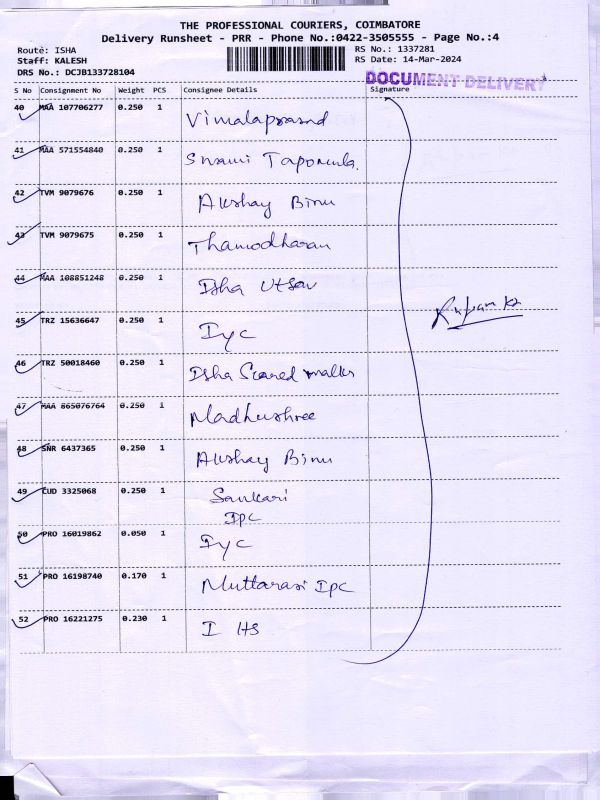 THE PROFESSIONAL COURIERS, COIMBATORE
Delivery Runsheet - PRR - Phone No.:0422-3505555 - Page No.:4
Route: ISHA RS No.: 1337281
Staff: KALESH RS Date: 14-Mar-2024
DRS No.: DCJB133728104
DOCUMENT DELIVERY
S No Consignment No Weight PCS Consignee Details Signature
40 MAA 107706277 0.250 1 Vimalaprasad
41 MAA 571554840 0.250 1 Swami
42 TVM 9079676 0.250 1 Akshay Binu
43 TVM 9079675 0.250 1 Thamodharan
44 MAA 108851248 0.250 1 Isha Utsav
45 TRZ 15636647 0.250 1 Iyc
46 TRZ 50018460 0.250 1 Isha Scared walks
47 MAA 865076764 0.250 1 Madhushree
48 SNR 6437365 0.250 1 Akshay Binu
49 CUD 3325068 0.250 1 Sankari
IPC
50 PRO 16019862 0.050 1 Iyc
51 PRO 16198740 0.170 1 Muttarasi Ipc
52 PRO 16221275 0.230 1 I HS